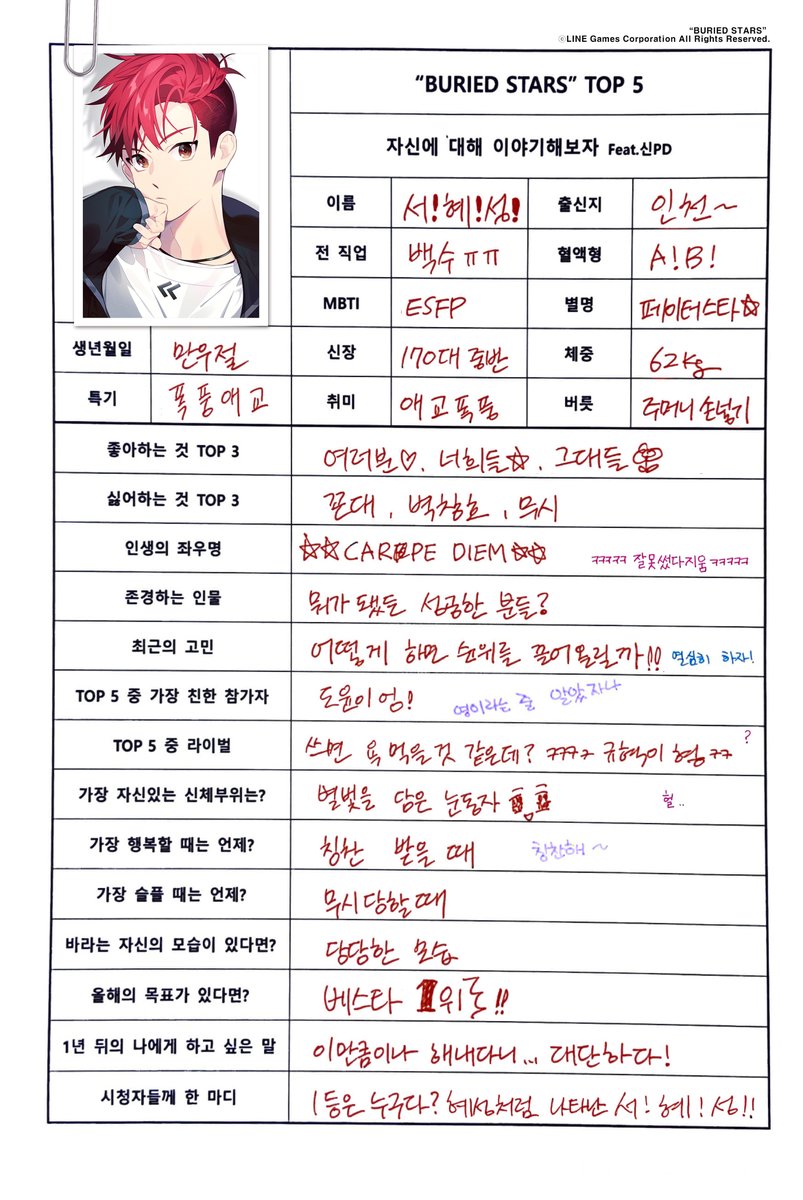 "BURIED STARS"
©LINE Games Corporation All Rights Reserved.
"BURIED STARS" TOP 5
자신에 대해 이야기해보자 Feat.신PD
이름 서!혜!성! 출신지 인천~
전 직업 백수ㅠㅠ 혈액형 A!B!
MBTI ESFP 별명 페이터스타☆
생년월일 만우절 신장 170대 중반 체중 62kg
특기 폭풍애교 취미 애교폭풍 버릇 주머니 손넣기
좋아하는 것 TOP 3 여러분♡, 너희들☆, 그대들
싫어하는 것 TOP 3 꼰대, 벽창호, 무시
인생의 좌우명 ☆☆CARPE DIEM☆☆ ㅋㅋㅋㅋㅋ 잘못썼다지움ㅋㅋㅋㅋㅋ
존경하는 인물 뭐가 됐든 성공한 분들?
최근의 고민 어떻게 하면 순위를 끌어올릴까!! 열심히 하자!
TOP 5 중 가장 친한 참가자 도윤이 엉! 영이라는 줄 알았자나
TOP 5 중 라이벌 쓰면 욕 먹을 것 같은데? ㅋㅋㅋㅋ 규혁이 형ㅋㅋ ?
가장 자신있는 신체부위는? 별빛을 담은 눈동자 헐..
가장 행복할 때는 언제? 칭찬 받을 때 칭찬해~
가장 슬플 때는 언제? 무시당할때
바라는 자신의 모습이 있다면? 당당한 모습
올해의 목표가 있다면? 베스타 1위로!!
1년 뒤의 나에게 하고 싶은 말 이만큼이나 해내다니... 대단하다!
시청자들께 한 마디 1등은 누구다? 혜성처럼 나타난 서!혜!성!!